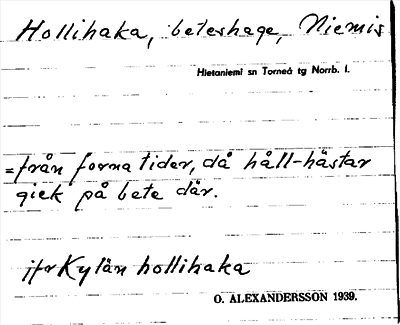 Hollihaka, beteshage, Niemis
Hietaniemi sn Torneå tg Norrb. l.
=från forna tider, då håll-hästar
gick på bete där.
jfr Kylän hollihaka
O. ALEXANDERSSON 1939.